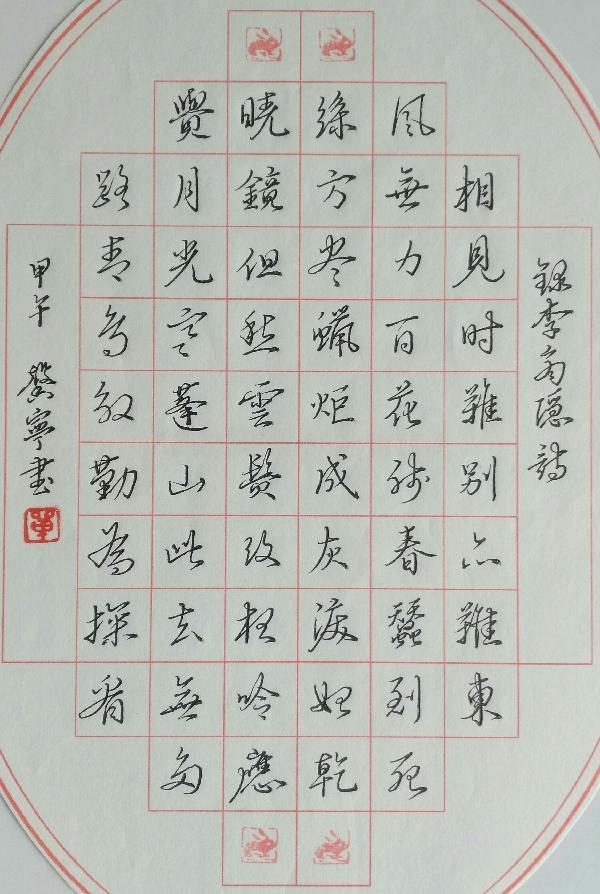 錄李商隐詩
相見时難别亦難東
风無力百花残春蠶到死
絲方尽蝋炬成灰淚始乾
曉鏡但愁雲鬓改枉吟應
覺月光寒蓬山此去無多
路青鸟殷勤為探看
甲午 寧书